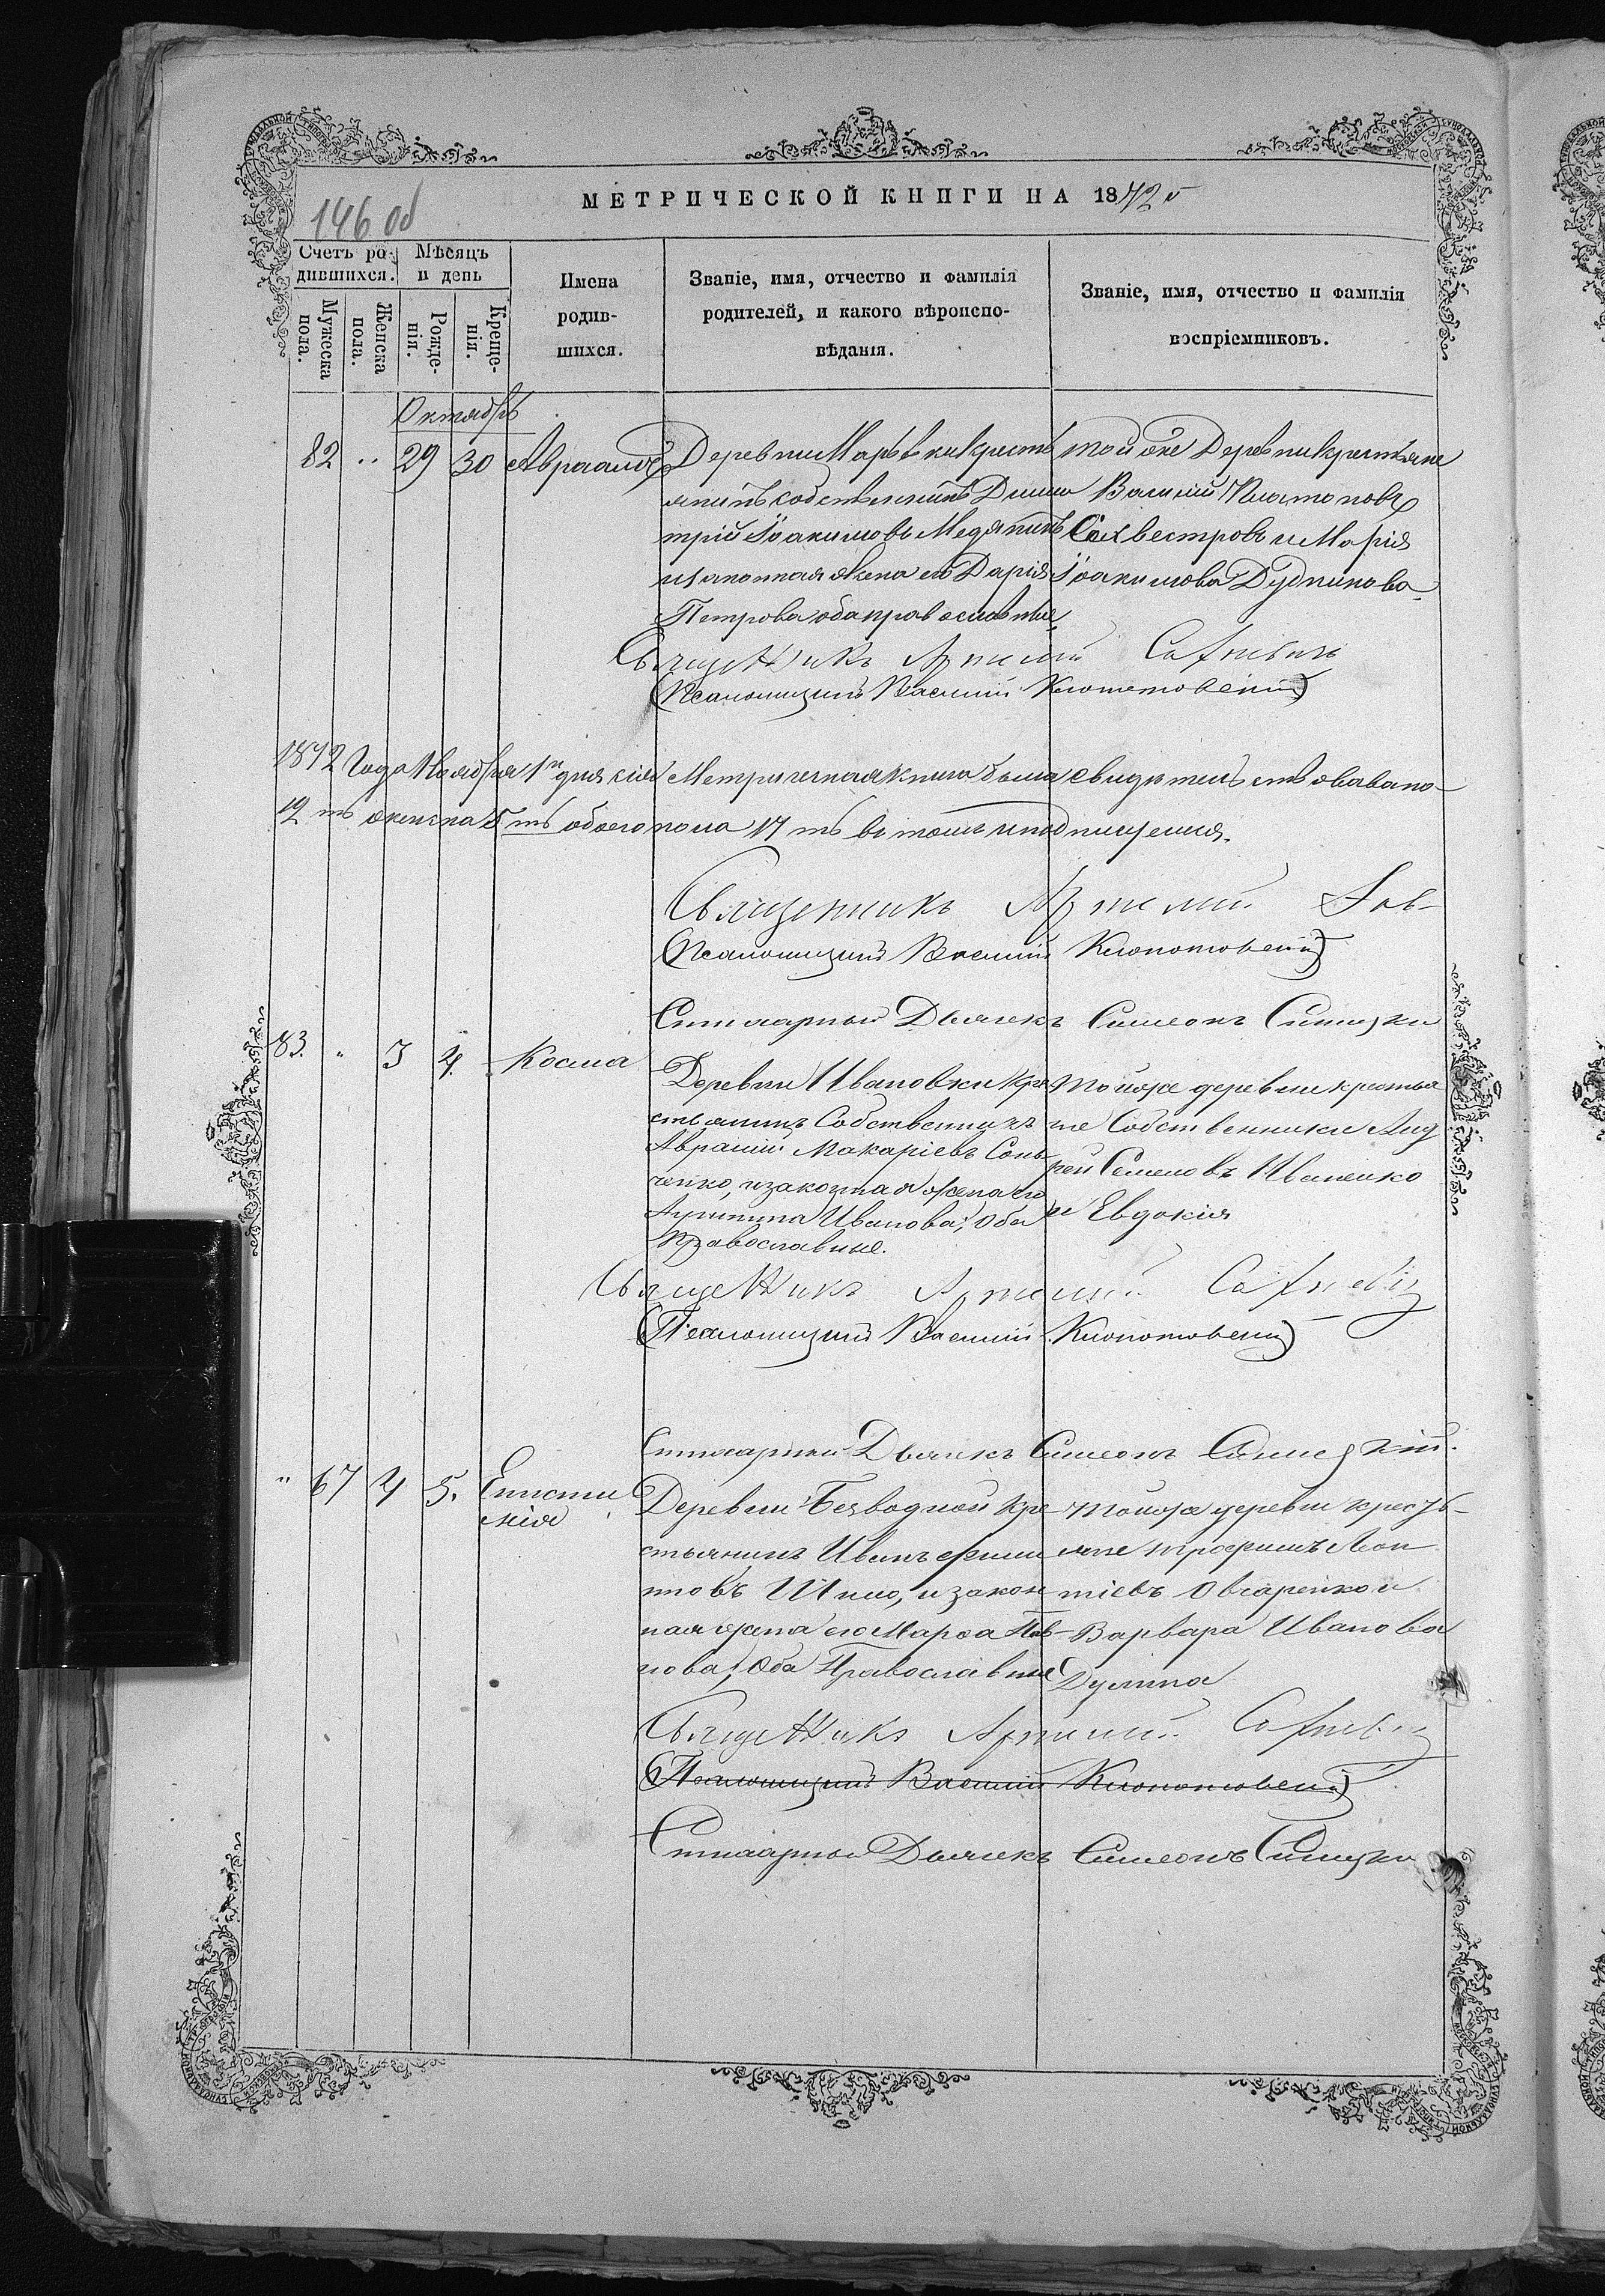 146 об
МЕТРИЧЕСКОЙ КНИГИ НА 1872 г
Счетъ ро-
дившихся.
Мѣсяцъ
и день
Имена
родив-
шихся.
Званіе, имя, отчество и фамилія
родителей, и какого вѣроиспо-
вѣданія.
Званіе, имя, отчество и фамилія
воспріемниковъ.
Мужеска
пола.
Женска
пола.
Рожде-
нія.
Креще-
нія.
Октябрь
82 " 29 30 Авраамъ
Деревни Марьевки кресть
янинъ собственникъ Дими
трій Іоакимовъ Медянинъ
и законная жена его Дарія
Петрова оба православные
той же Деревни крестьяне
Василій Платоновъ
Селвестровъ и Марія
Іоакимова Дудникова
Священникъ Артемій
(Псаломщикъ Василій Клопотовскій)
1872 Года Ноября 1го дня сія Метрическая книга была свидетельствовано
12 ть женска 5 ть обоего пола 17 ть въ томъ и подпишемся.
Священникъ Артемій
(Псаломщикъ Василій Клопотовскій)
Стихарный Дьячекъ Симеонъ
83. " 3 4. Косма
Деревни Ивановки Кре
стьянинъ Собственникъ
Аврамій Макаріевъ
ченко, и законная жена его
Ивановна; Оба
Православные.
Той же деревни крестья
не Собственники Анд
рей Семеновъ Иваненко
и Евдокія
Священникъ Артемій
(Псаломщикъ Василій Клопотовскій)
Стихарный Дьячекъ Симеонъ
" 67 4 5. Еписти
мія
Деревни Безводной Кре
стьянинъ Иванъ Филип
повъ Шило, и закон
ная жена его Марѳа Пав
лова; Оба Православные
Той же деревни кресть
яне Трофимъ Леон
тіевъ Овчаренко и
Варвара Иванова
Дулина
Священникъ Артемій
(Псаломщикъ Василій Клопотовскій)
Стихарный Дьячекъ Симеонъ